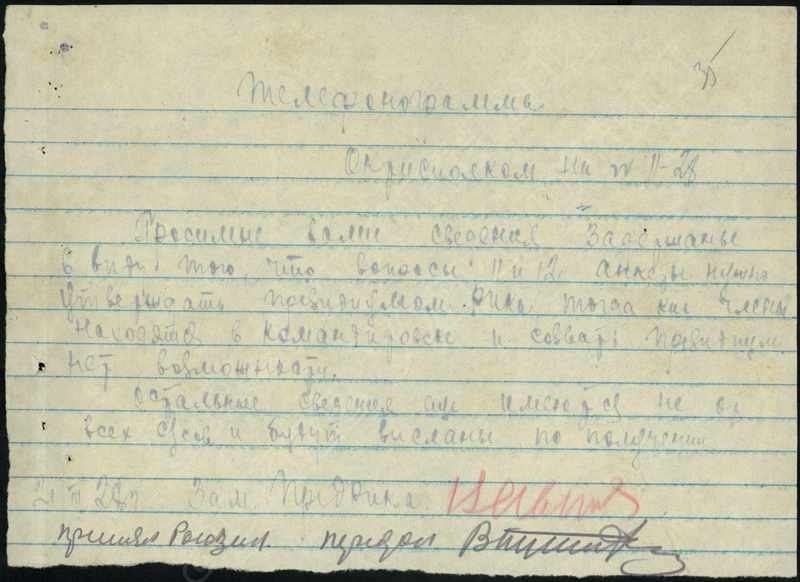 35
Телефонограмма.
Окрисполком на № 11-28
Просимые вами сведения задержаны
в виду того, что вопросы 11 и 12 анкеты нужно
утверждать президиумом РИКа, тогда как члены
находятся в командировке и созвать президиум
нет возможности.
Остальные сведения имеются не от
всех с/сов и будут высланы по получении
21/III 28 г. Зам. Предрика
принял передал